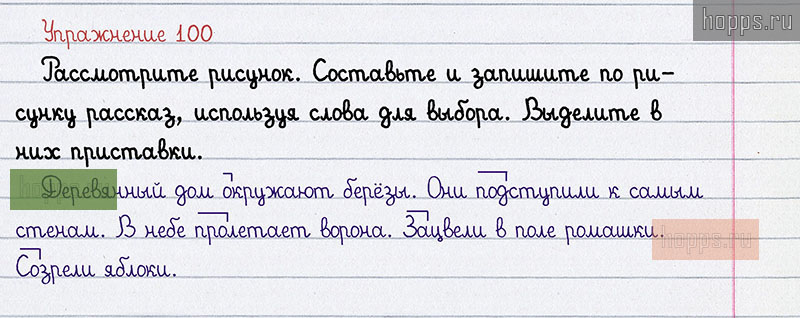 hopps.ru
Упражнение 100
Рассмотрите рисунок. Составьте и запишите по ри-
сунку рассказ, используя слова для выбора. Выделите в
них приставки.
Деревянный дом окружают берёзы. Они подступили к самым
стенам. В небе пролетает ворона. Зацвели в поле ромашки.
Созрели яблоки.
hopps.ru
hopps.ru